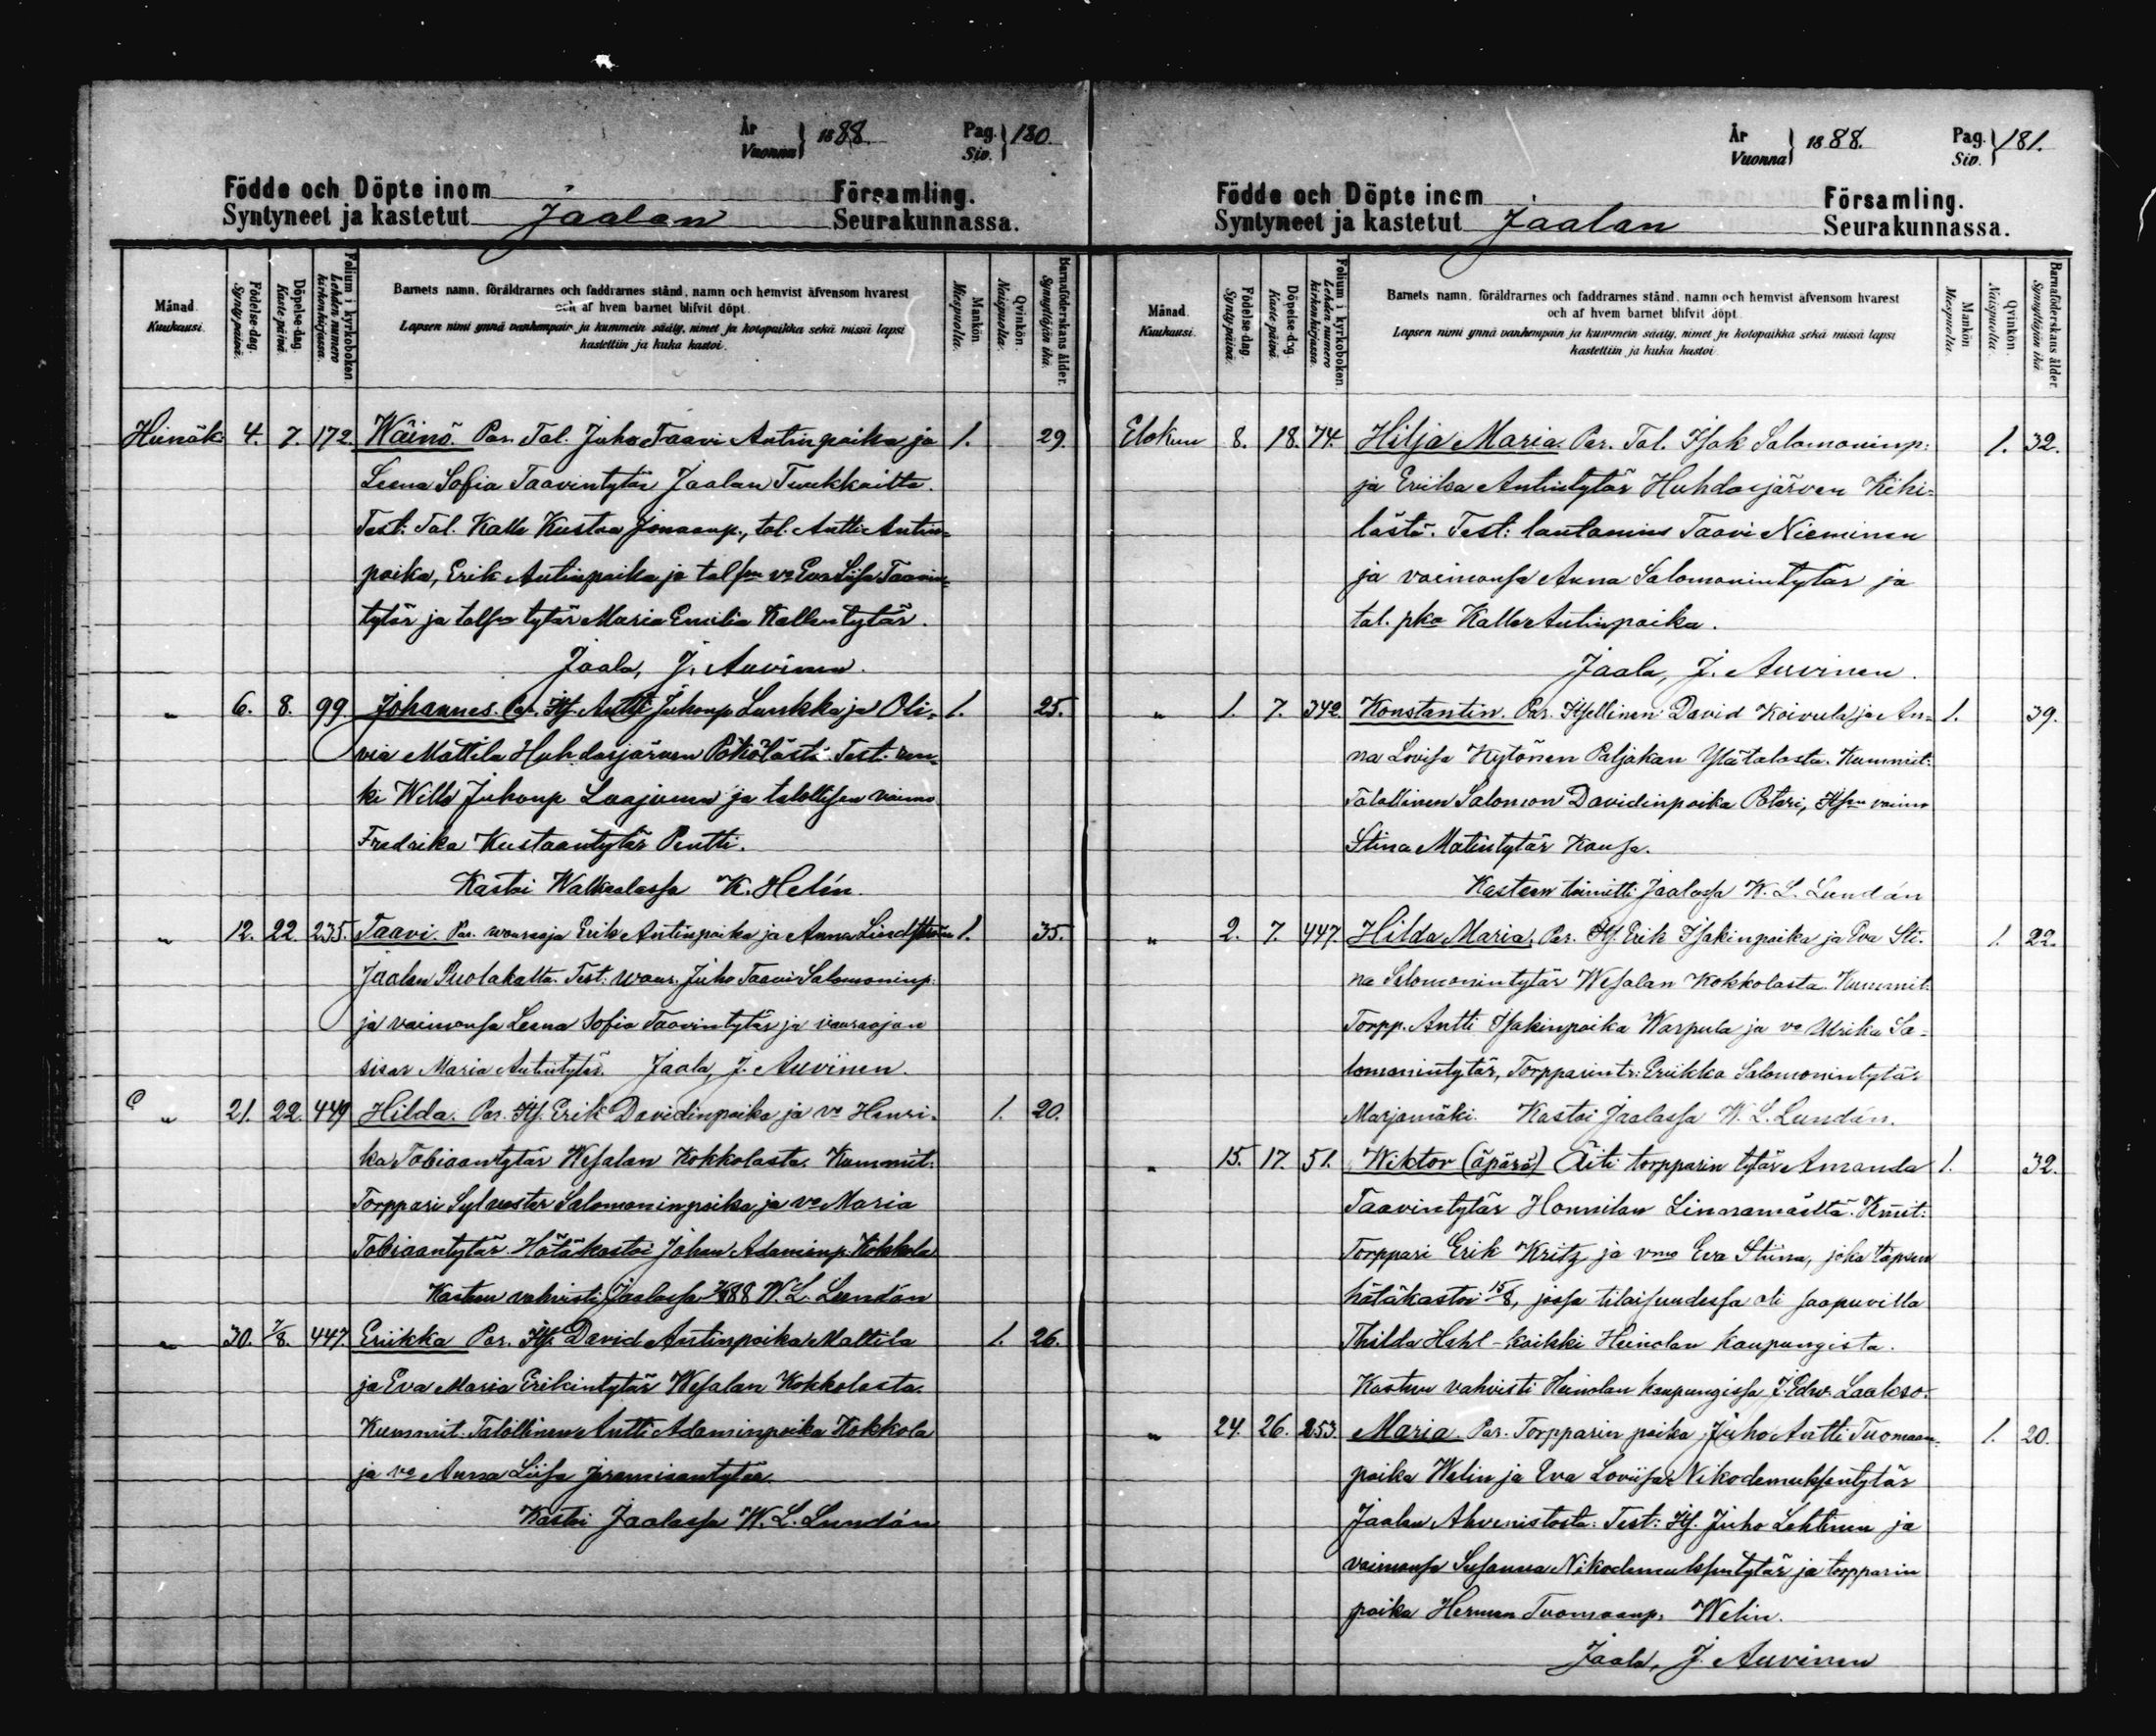 År
Vuonna } 1888. Pag.
Siv. } 180.
Födde och Döpte inom Församling.
Syntyneet ja kastetut Jaalan Seurakunnassa.
Månad.
Kuukausi.
Födelse-dag.
Syntypäivä.
Döpelse-dag.
Kaste-päivä.
Folium i kyrkoboken.
Lehden numero
kirkonkirjassa.
Barnets namn, föräldrarnes och faddrarnes stånd, namn och hemvist äfvensom hvarest
och af hvem barnet blifvit döpt.
Lapsen nimi ynnä vanhempain ja kummein sääty, nimet ja kotopaikka sekä missä lapsi
kastettiin ja kuka kastoi.
Mankön.
Miespuolia.
Qvinkön.
Naispuolia.
Barnaföderskans ålder.
Synnyttäjän ikä.
Heinäk. 4. 7. 172. Wäinö. Par. Tal. Juho Taavi Antinpoika ja 1. 29.
Leena Sofia Taavintytär Jaalan
Test: Tal. Kalle Kustaa Jonaanp., tal. Antti Antin-
poika, Erik Antinpoika ja talsen vo Eva Liisa Taavin-
tytär ja talsen tytär Maria Emilia Kallentytär.
Jaala, J. Auvinen.
„ 6. 8. 99. Johannes. Par. Its. Antti Juhonp. Luukka ja Oli- 1. 25.
via Mattila Huhdasjärven Pökölästä. Test: ren-
ki Wille Juhonp. Laajunen ja talollisen vaimo
Fredrika Kustaantytär Pentti.
Kastoi Walkealassa K. Helén.
„ 12. 22. 235. Taavi. Par. wouraaja Erik Antinpoika ja Anna Lindström 1. 35.
Jaalan Puolakalta. Test: wour. Juho Taavi Salomoninp.
ja vaimonsa Leena Sofia Taavintytär ja vouraajan
sisar Maria Antintytär. Jaala, J. Auvinen.
„ 21. 22. 449. Hilda. Par. Its. Erik Davidinpoika ja vo Henri- 1. 20.
ka Tobiaantytär Wesalan Kokkolasta. Kummit:
Torppari Sylvester Salomoninpoika ja vo Maria
Tobiaantytär. Hätäkastoi Johan Adaminp. Kokkola
Kasteen vahvisti Jaalassa 88 W. L. Lundán
„ 30. 7/8. 447. Eriikka Par. Its. David Antinpoika Mattila 1. 26.
ja Eva Maria Erikintytär Wesalan Kokkolasta.
Kummit: Talollinen Antti Adaminpoika Kokkola
ja vo Anna Liisa Jeremiaantytär.
Kastoi Jaalassa W. L. Lundán
År
Vuonna } 1888. Pag.
Siv. } 181.
Födde och Döpte inom Församling.
Syntyneet ja kastetut Jaalan Seurakunnassa.
Månad.
Kuukausi.
Födelse-dag.
Syntypäivä.
Döpelse-dag.
Kaste-päivä.
Folium i kyrkoboken.
Lehden numero
kirkonkirjassa.
Barnets namn, föräldrarnes och faddrarnes stånd, namn och hemvist äfvensom hvarest
och af hvem barnet blifvit döpt.
Lapsen nimi ynnä vanhempain ja kummein sääty, nimet ja kotopaikka sekä missä lapsi
kastettiin ja kuka kastoi.
Mankön
Miespuolia.
Qvinkön.
Naispuolia.
Barnaföderskans ålder.
Synnyttäjän ikä
Elokuu 8. 18. 74. Hilja Maria. Par. Tal. Isak Salomoninp. 1. 32.
ja Erika Antintytär Huhdasjärven Kihi-
lästä. Test: lautamies Taavi Nieminen
ja vaimonsa Anna Salomonintytär ja
tal. pka Kalle Antinpoika.
Jaala, J. Auvinen.
„ 1. 7. 342. Konstantin. Par. Itsellinen David Koivula ja An- 1. 39.
na Lovisa Hytönen Paljakan Ylätalosta. Kummit:
Talollinen Salomon Davidinpoika Potari, Itsen vaimo
Stina Matintytär Kausa.
Kasteen toimitti Jaalassa W. L. Lundán
„ 2. 7. 447. Hilda Maria. Par. Its. Erik Isakinpoika ja Eva Sti- 1. 22.
na Salomonintytär Wesalan Kokkolasta. Kummit:
Torpp. Antti Isakinpoika Warpula ja vo Ulrika Sa-
lomonintytär, Torpparint: Eriikka Salomonintytär
Marjamäki. Kastoi Jaalassa W. L. Lundán.
„ 15. 17. 51. Wiktor (äpärä) Äiti torpparin tytär Amanda 1. 32.
Taavintytär Honnilan Linnamäeltä. Kmit:
Torppari Erik Kritz ja vmo Eva Stiina, joka lapsen
hätäkastoi 15/8, jossa tilaisuudessa oli saapuvilla
Thilda Hahl - kaikki Heinolan kaupungista.
Kasteen vahvisti Heinolan kaupungissa J. Edw. Laakso.
„ 24. 26. 253. Maria Par. Torpparin poika Juho Antti Tuomaan- 1. 20.
poika Welin ja Eva Loviisa Nikodemuksentytär
Jaalan Ahvenistosta. Test: Its. Juho Lehtinen ja
vaimonsa Susanna Nikodemuksentytär ja torpparin
poika Herman Tuomaanp. Welin.
Jaala, J. Auvinen